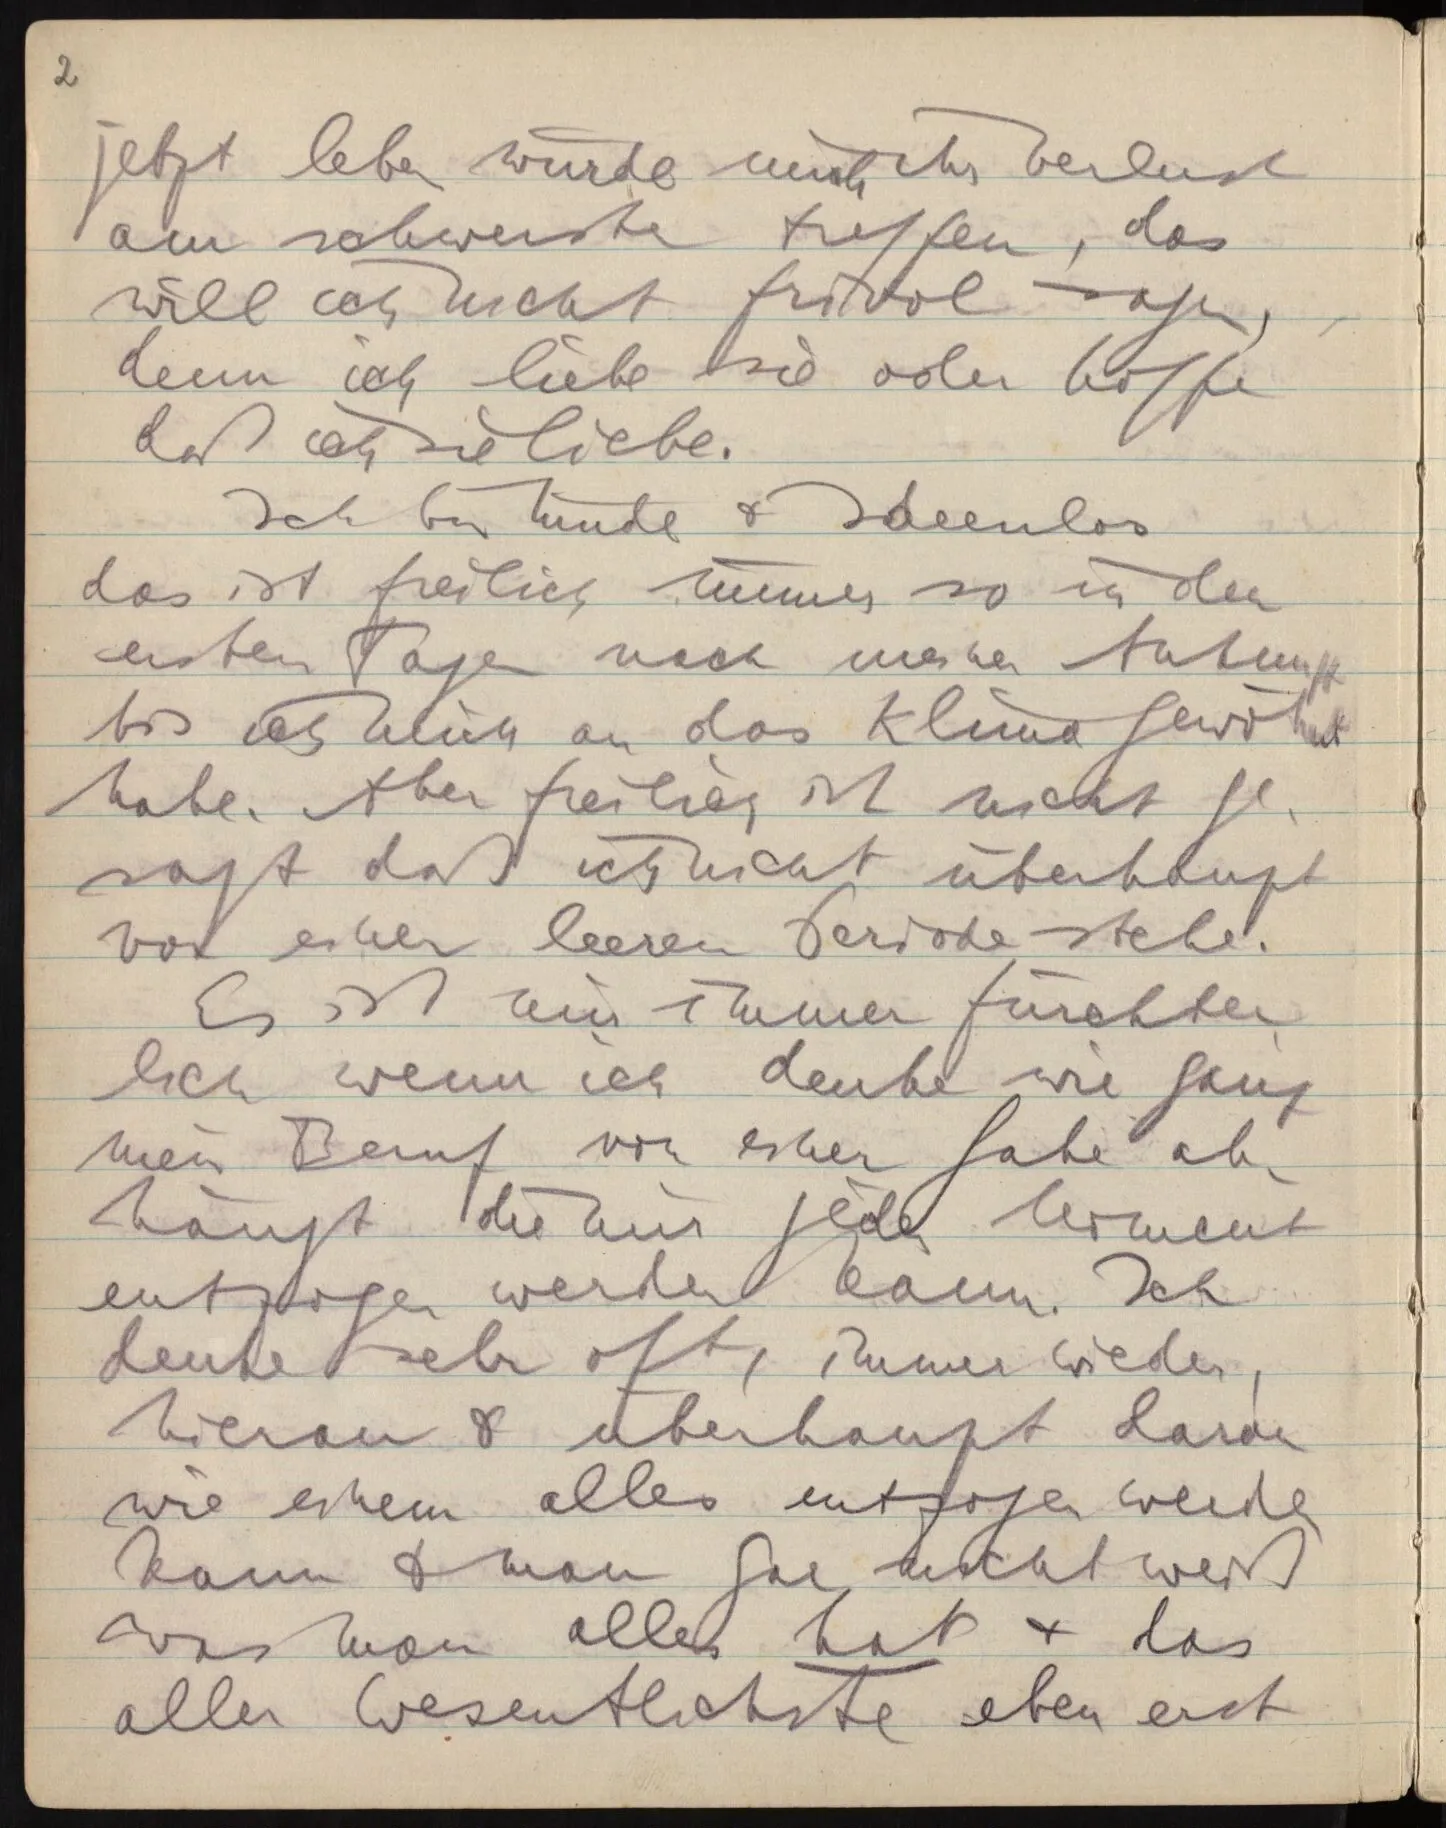 2
jetzt leben würde mich ihr Verlust
am schwersten treffen, das
will ich nicht frivol sagen,
denn ich liebe sie oder hoffe
daß ich sie liebe.
Ich bin müde & Ideenlos
das ist freilich immer so in den
ersten Tagen nach meiner Ankunft
bis ich mich an das Klima gewöhnt
habe. Aber freilich ist nicht ge-
sagt daß ich nicht überhaupt
vor einer leeren Periode stehe.
Es ist mir immer fürchter-
lich wenn ich denke wie ganz
mein Beruf von einer Gabe ab-
hängt die mir jeden Moment
entzogen werden kann. Ich
denke sehr oft, immer wieder,
hieran & überhaupt daran
wie einem alles entzogen werden
kann & man gar nicht weiß
was man alles hat & das
aller Wesentlichste eben erst